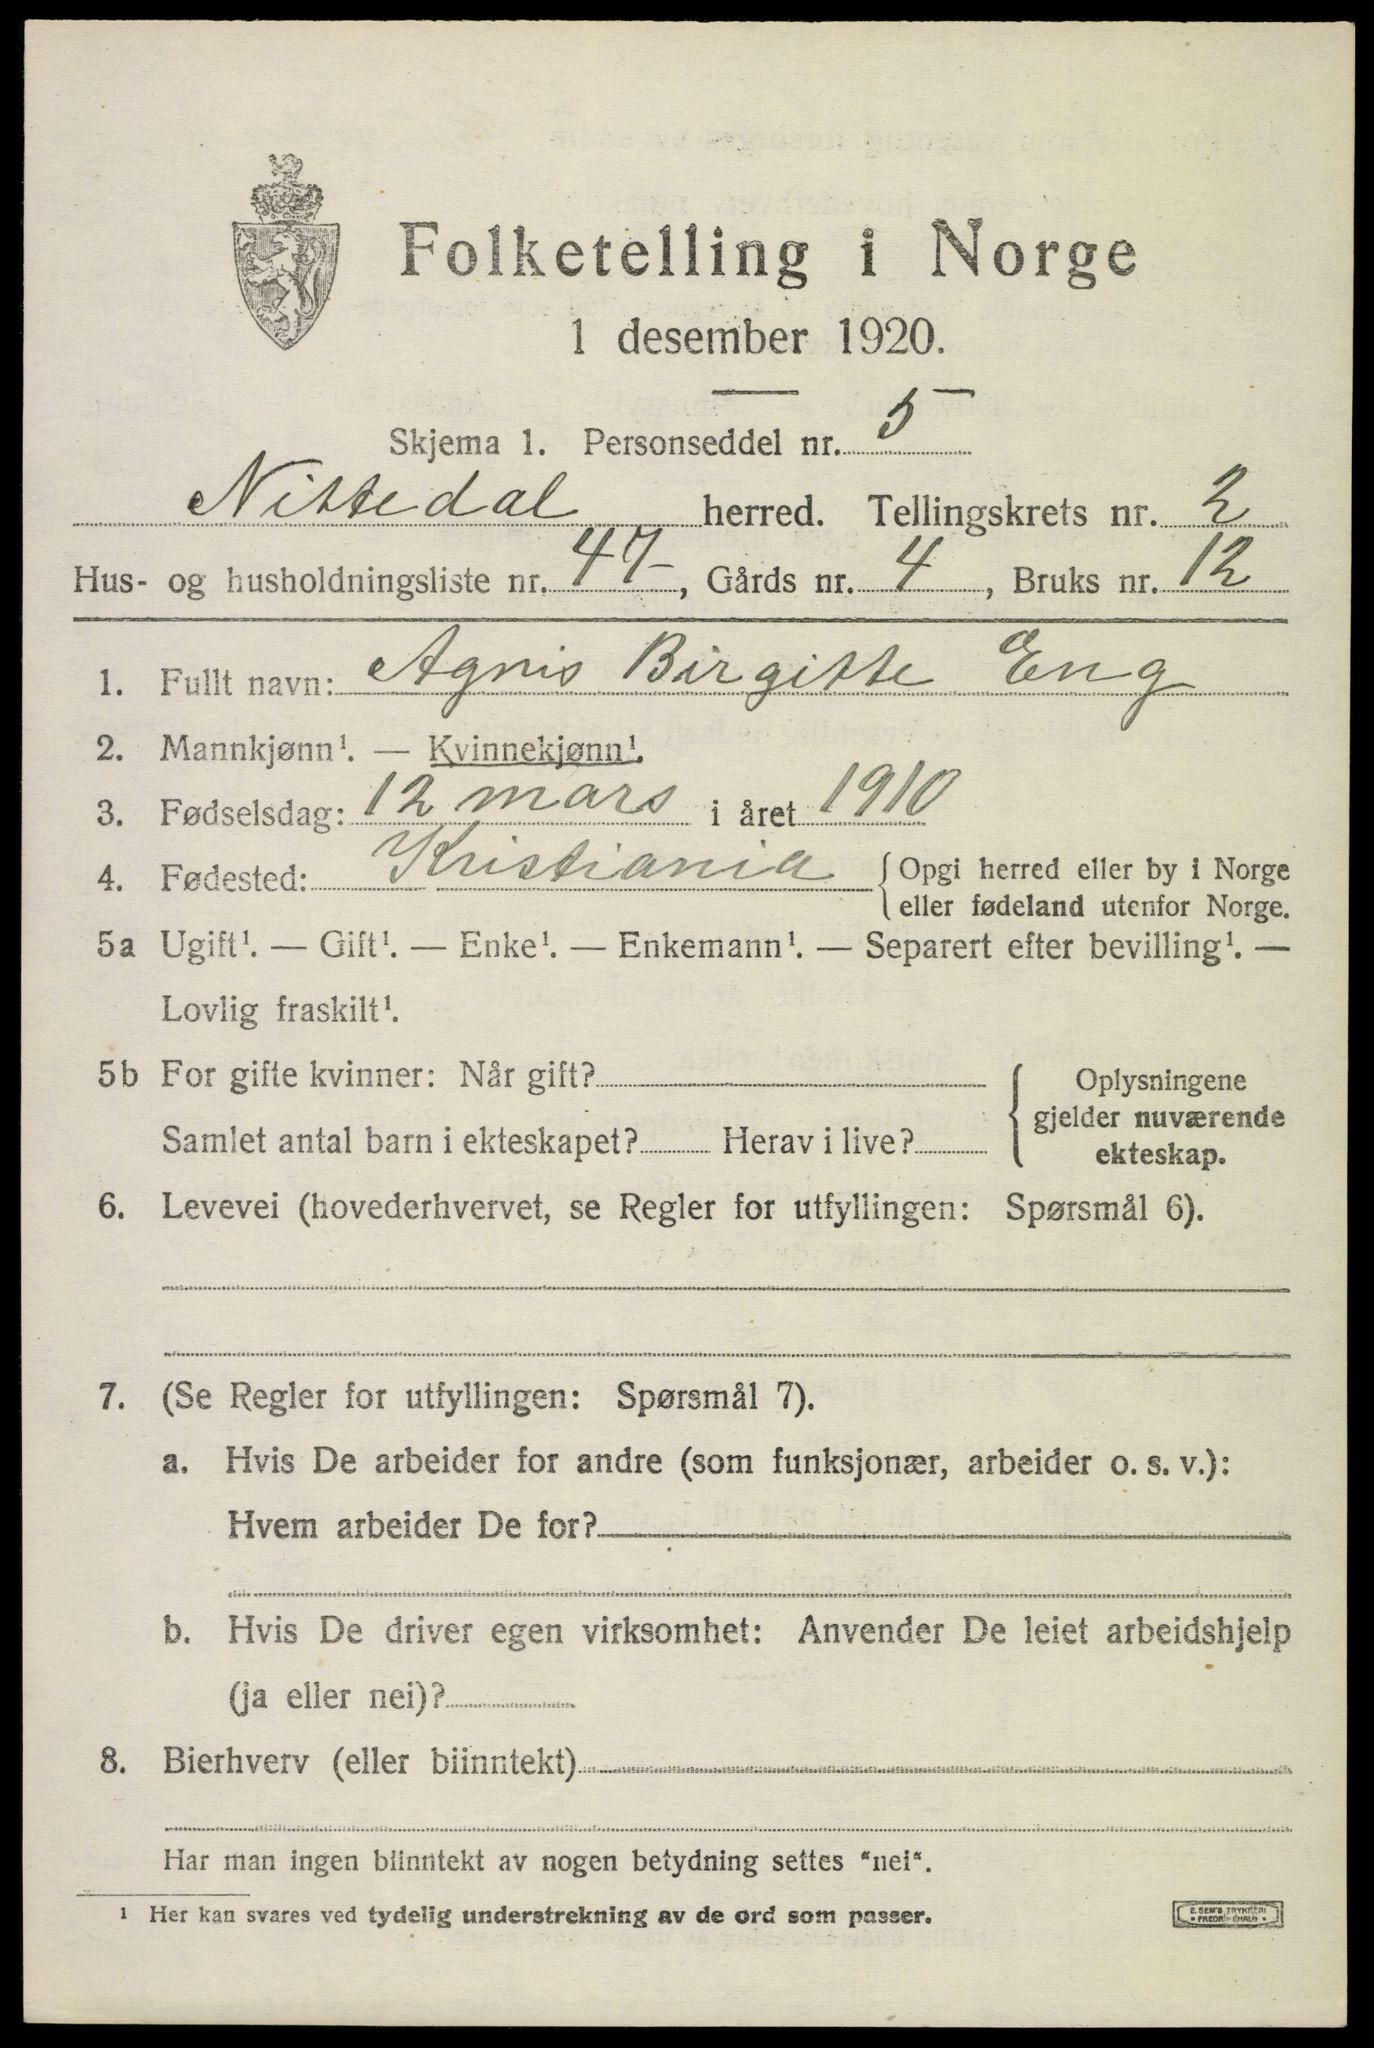 Folketelling i Norge
1 desember 1920.
Skjema 1. Personseddel nr. 5
Nittedal herred. Tellingskrets nr. 2
Hus- og husholdningsliste nr. 47, Gårds nr. 4, Bruks nr. 12
1. Fullt navn: Agnis Birgitte Eng
2. Mannkjønn¹. — Kvinnekjønn¹.
3. Fødselsdag: 12 mars i året 1910
4. Fødested: Kristiania {Opgi herred eller by i Norge
eller fødeland utenfor Norge.
5a Ugift¹. — Gift¹. — Enke¹. — Enkemann¹. — Separert efter bevilling¹. —
Lovlig fraskilt¹.
5b For gifte kvinner: Når gift?
Samlet antal barn i ekteskapet? Herav i live?
{Oplysningene
gjelder nuværende
ekteskap.
6. Levevei (hovederhvervet, se Regler for utfyllingen: Spørsmål 6).
7. (Se Regler for utfyllingen: Spørsmål 7).
a. Hvis De arbeider for andre (som funksjonær, arbeider o. s. v.):
Hvem arbeider De for?
b. Hvis De driver egen virksomhet: Anvender De leiet arbeidshjelp
(ja eller nei)?
8. Bierhverv (eller biinntekt)
Har man ingen biinntekt av nogen betydning settes "nei".
¹ Her kan svares ved tydelig understrekning av de ord som passer.
E. SEM'S TRYKKERI
FREDRIKSHALD